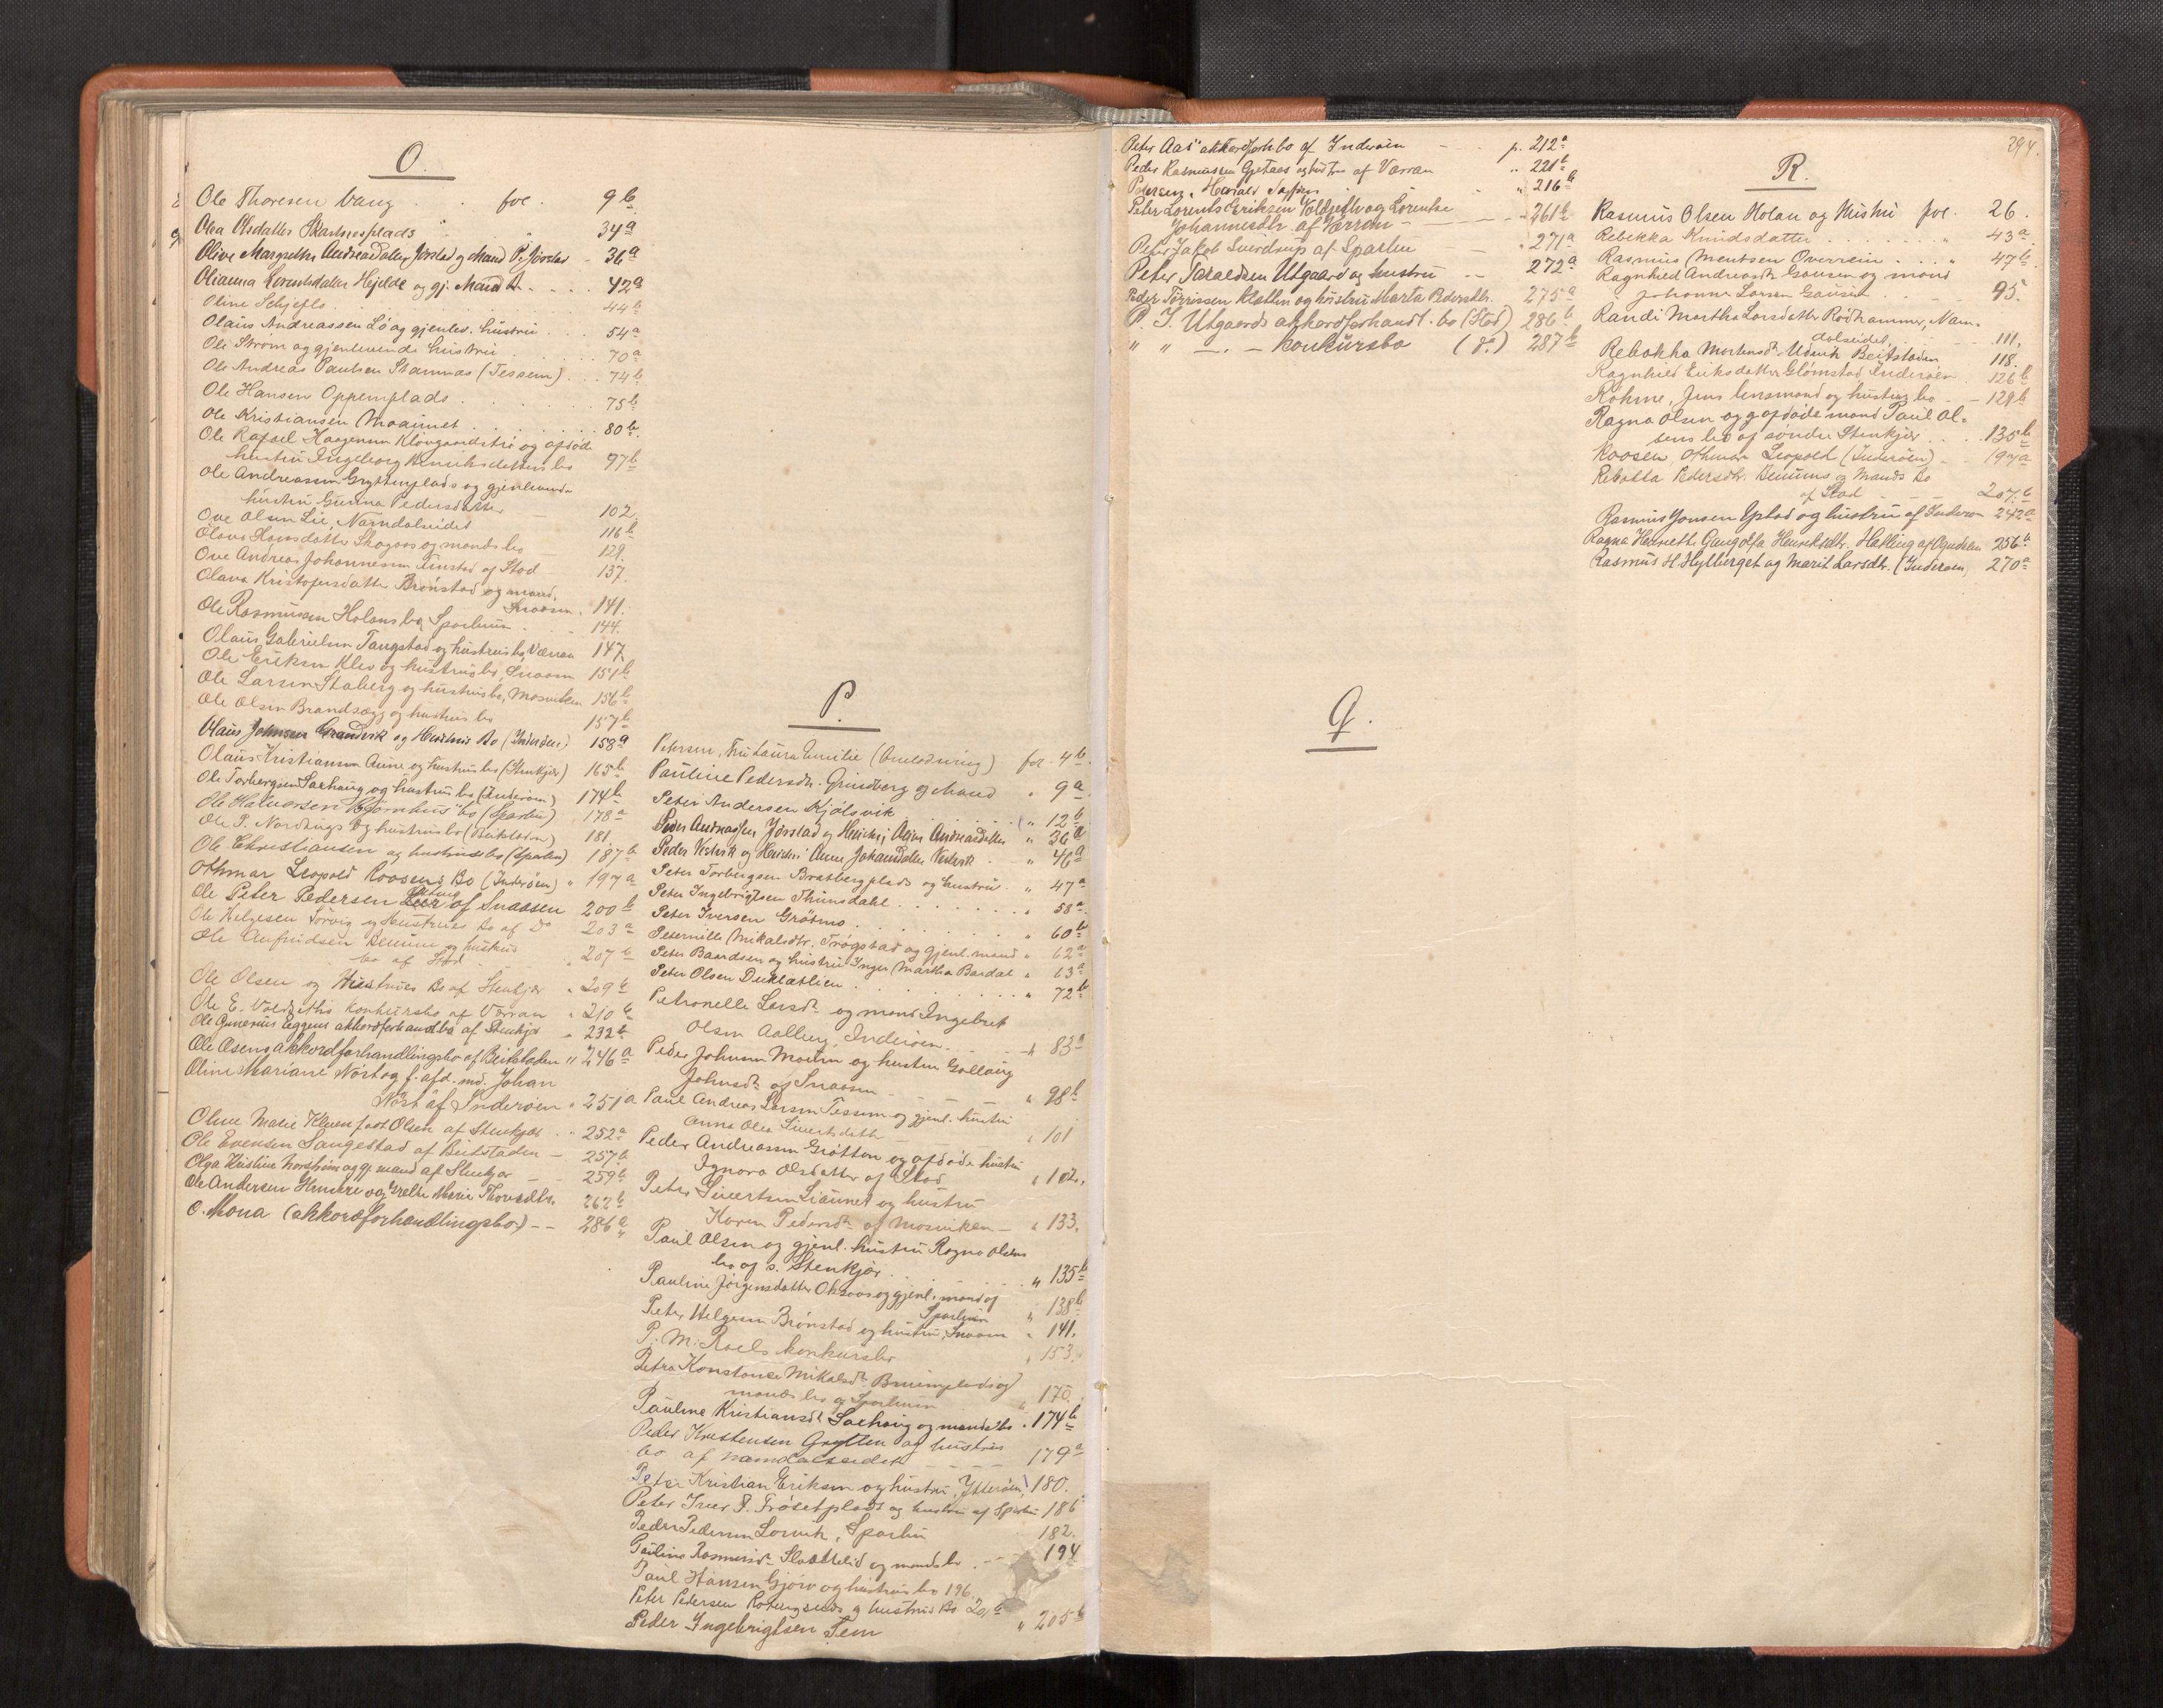 O.
Ole Thoresen Vang . . fol. 9b
Olea Olsdatter Skarhusplads " 34a
Olive Margrethe Andreasdatter Jørstad og Mand P. Jørstad - 36a
Olianna Lorentsdatter Hjelde og gj. Mand A. . . . . 42a
Oline Schjeflo . . . 44b
Olaus Andreassen Lø og gjenlev. hustru . . . 54a
Ole Strøm og gjenlevende hustru . . . 70a
Ole Andreas Paulsen Stamnæs (Tessem) . . . 74b
Ole Hansen Oppemplads . . . 75b
Ole Kristiansen Moaunet . . . 80b.
Ole Rafael Haagensen Kløvgaardstrø og afdøde
hustru Ingeborg Henriksdatters bo 97b
Ole Andreassen Gryttenplads og gjenlevende
hustru Gurina Pedersdatter 102.
Ove Olsen Lie, Namdalseidet 116b
Olava Hansdatter Skogaas og mands bo 129.
Ove Andreas Johannessen Finstad af Stod 137.
Olava Kristofersdatter Brønstad og mand,
Snaasen. 141.
Ole Rasmussen Holans bo, Sparbuen 144.
Olaus Gabrielsen Tangstad og hustrus bo, Værran 147.
Ole Eriksen Klev og hustrus bo, Snaasen 151b
Ole Larsen Staberg og hustrus bo, Mosviken 156b
Ole Olsen Brandsegg og hustrus bo 157b
Olaus Johnsen Grandvik og Hustrus Bo (Inderøen) 158a
Olaus Kristiansen Aune og hustrus bo (Stenkjær) 165b
Ole Torbergsen Sakshaug og hustrus bo (Inderøen) 174b
Ole Halvorsen Bjørnhus' bo (Sparbu) 178a
Ole P. Nordings og hustrus bo (Beitstaden) 181.
Ole Christiansen og hustrus bo (Sparbu) 187b
Othmar Leopold Roosens Bo (Inderøen) " 197a
Ole Peter Pedersen af Snaasen 200b
Ole Helgesen Sørvig og Hustrues Bo af Do 203a
Ole Anfindsen Benum og hustrus
bo af Stod . . 207b
Ole Olsen og Hustrues Bo af Stenkjær " 209b
Ole E. Voldseths konkursbo af Værran " 210b
Ole Gunerius Eggens akkordforhandl.bo af Stenkjær " 232b
Ole Øsens akkordforhandlingsbo af Beitstaden " 246a
Oline Mariane Nøst og f. afd. md. Johan
Nøst af Inderøen " 251a
Oline Marie Kleven født Olsen af Stenkjær . " 252a
Ole Evensen Saugestad af Beitstaden — 257b
Olga Kristine Norstrøm og gj. mand af Stenkjær 259b
Ole Andersen Hundere og Grethe Marie Thorsdtr. 262b
O. Mona (akkordforhandlingsbo) -- 286a
P.
Petersen, Fru Laura Emilie (Omlodning) fol. 4b.
Pauline Pedersdr. Grindberg og Mand " 9a
Peter Andersen Kjølsvik . . . " 12b
Peder Andreassen Jørstad og Hustru Oline Andreasdatter " 36a
Peder Vestvik og Hustru Anne Johansdatter Vestvik " 46a
Peter Torbergsen Bratbergplads og hustru . " 47a
Peter Ingebrigtsen Thunsdahl . . . " 58a.
Peter Iversen Grøtmo . . . " 60b
Peternille Mikalsdtr. Trøgstad og gjenl. mand " 62a
Peter Baardsen og hustru Inger Martha Bardal " 63a
Peter Olsen Dukkætlien . . . " 72b
Petronelle Larsdr og mand Ingebret
Olsen Aalberg, Inderøen . . . " 83a
Peder Johnsen Moeln og hustru Gollaug
Johnsdr af Snaasen " 98b
Paul Andreas Larsen Tessem og gjenl. hustru
Anna Olea Sivertsdatter " 101
Peder Andreassen Grøtton og afdøde hustru
Ignora Olsdatter af Stod " 102.
Peter Sivertsen Liaunet og hustru
Karen Pedersdr af Mosviken — " 133.
Paul Olsen og gjenl. hustru Ragna Olsens
bo af s. Stenkjær . . . " 135b
Pauline Jørgensdatter Oksaas og gjenl. mand af
Sparbuen " 138b
Peter Helgesen Brønstad og hustru, Snaasen " 141.
P. M. Roels konkursbo " 153.
Petra Konstanse Mikalsdr Bruemplads og
mands bo af Sparbuen " 170.
Pauline Kristiansdr Sakshaug og mands bo " 174b
Peder Kristensen Grytten og hustrus
bo af Namdalseidet — — — 179a
Peter Kristian Eriksen og hustru, Ytterøen, 180.
Peter Iver P. Frøsetplads og hustru af Sparbu 186
Peder Pedersen Lorvik, Sparbu 182.
Pauline Rasmusdr Slaattelid og mands bo . — 194
Paul Hansen Gjørv og hustrus bo 196.
Peter Pedersen Rotungseds og hustrus Bo 201b
Peder Ingebrigtsen Sem " 205b
Peter Aas' akkordforh.bo af Inderøen — p. 212a
Peder Rasmussen Gjetaas og hustru af Værran " 221b
Petersen, Harald " 216b
Peter Lorents Eriksen Voldseth og Lorentse
Johannesdtr. af Værran — — " 261b
Peter Jakob Sverdrup af Sparbu — " 271a
Peter Taraldsen Utgaard og hustru -- 272a
Peder Tørrissen Kletten og hustru Marta Pedersdtr. 275a
P. T. Utgaards akkordforhandl. bo (Stod) 286b
" " — . — Konkursbo (do) 287b
Q.
294.
R.
Rasmus Olsen Holan og Hustru fol. 26.
Rebekka Knudsdatter . . . " 43a
Rasmus Mentsen Overrein . . . " 47b
Ragnhild Andreasdr. Gausen og mand
Johannes Larsen Gausen . . . 95.
Randi Martha Larsdatter Rødhammer, Nam-
dalseidet, 111.
Rebekka Mortensdr. Udvik Beitstaden 118.
Ragnhild Eriksdatter Glømstad Inderøen 126b
Røhme, Jens lensmand og hustrus bo — 129b
Ragna Olsen og gj. afdøde mand Paul Ol-
sens bo af søndre Stenkjær . . . 135b
Roosen, Othmar Leopold (Inderøen) — 197a
Rebekka Pedersdtr. Benums og Mands Bo
af Stod — — — 207.b
Rasmus Jonsen Ystad og hustru af Inderøen 242a
Ragna Henriette Gangolfa Henriksdtr. Helling af Ogndalen 256b
Rasmus H. Hylberget og Marit Larsdtr. (Inderøen) 270a